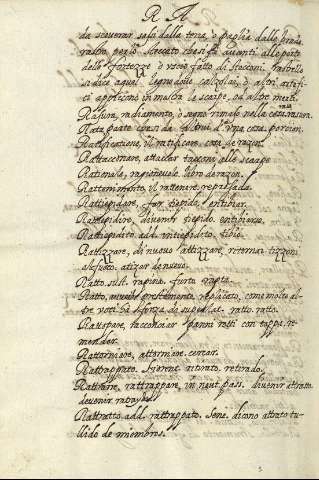 R A
da sceverar sassi dalla terra, o paglia dalla
rastro per lo steccato che si fa avanti alle porte
delle fortezze o vero fatto di stecconi. frastello
si dice a quel legno dove calzolai, o altri artefi-
ti appicono in mostra le scarpe, od altre merti.
Rasura, radiamento, o segno rimaso nella cosa rasa. rasura.
Rata parte che si da a d'una casa, porcion.
Ratificatione, il ratificare. cosa de razon.
Rattacconare, attaccar tacconi alle scarpe
Rationale, ragionevole. libro de razon.
Rattenimento, il rattenere. represada.
Rattiepidare, far tiepido, entibiar.
Rattiepidire, divenir tiepido. entibiarse.
Rattiepidito. add. intiepidito. tibio.
Rattizzare, di nuovo attizzare, riternar tizzoni
al fuoco. atizar de nuevo.
Ratto. sust. rapina. furto rapto.
Ratto, avverb. prestamente. replicato, come molte al-
tre voti ha di forza di superlat. ratto ratto.
Rattopare, racconciar panni rotti con toppe. re-
mendar.
Rattorniare, attorniare. cercar.
Rattrappato. ritirato, retirado.
Rattrarre, rattrappare, in neut. pass. divenir attratto.
devenir
Rattratto. add. rattrappato. Sene. dicono attrato tu-
llido de miembros.